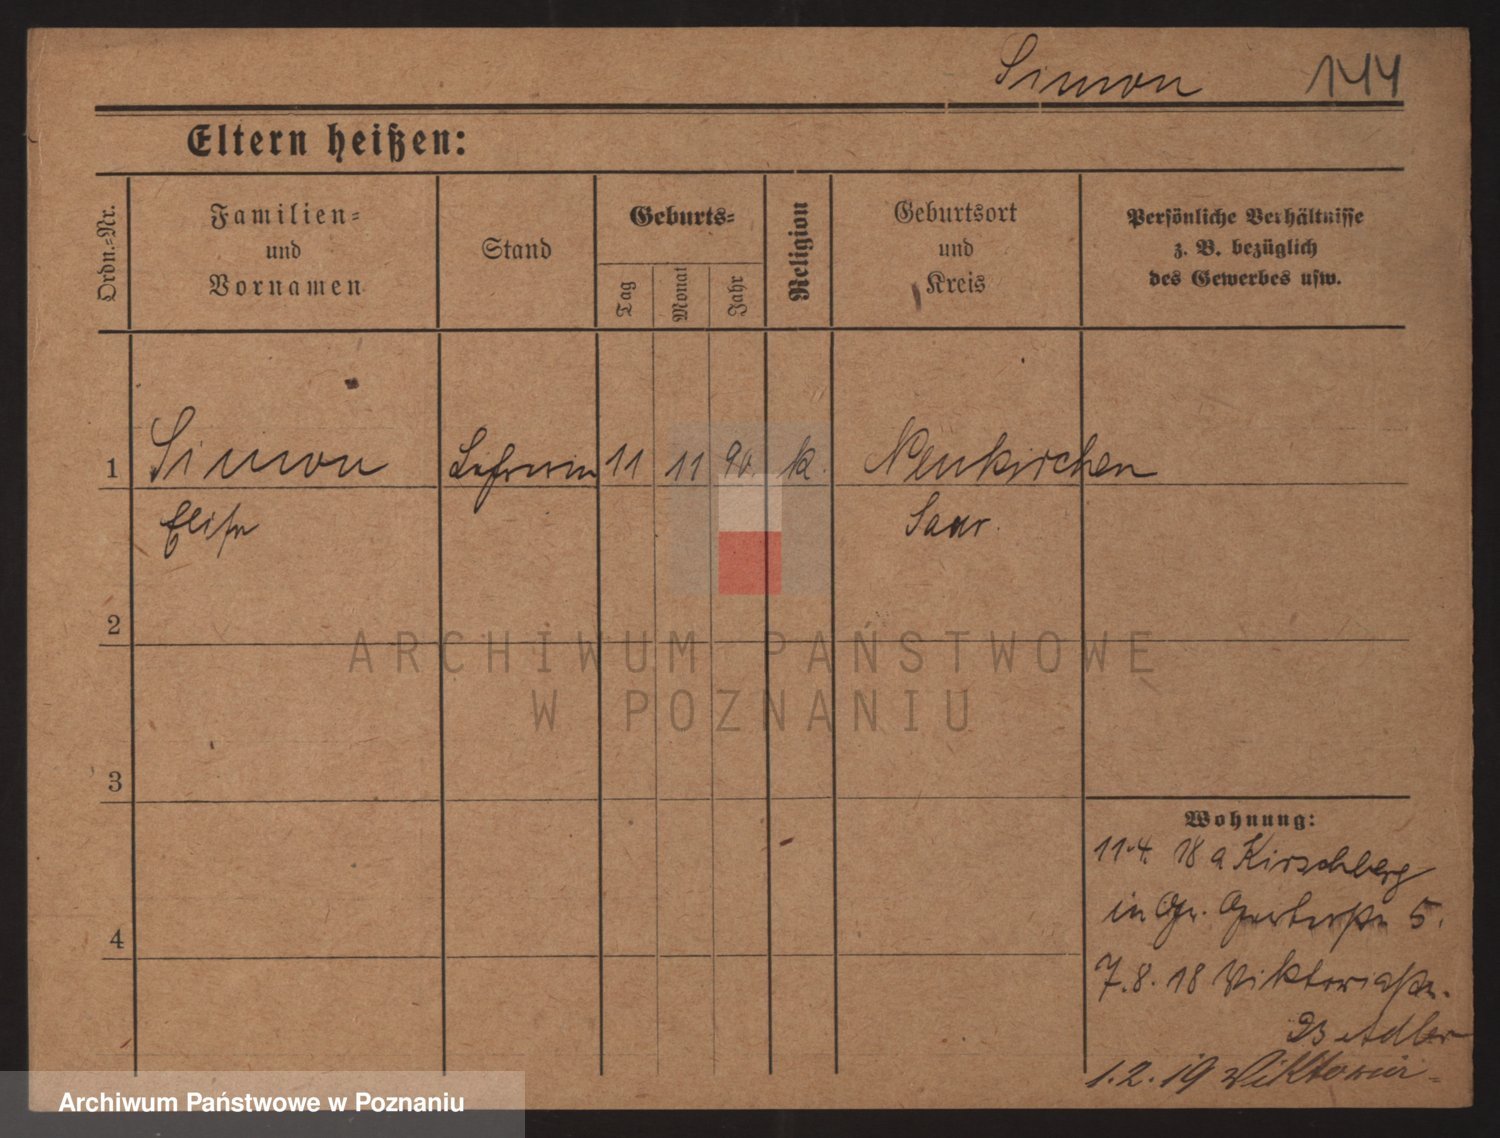 Simon 144
Eltern heißen:
Ordn.-Nr.
Familien-
und
Vornamen
Stand
Geburts-
Tag
Monat
Jahr
Religion
Geburtsort
und
Kreis
Persönliche Verhältnisse
z. B. bezüglich
des Gewerbes usw.
1 Simon Lehrerin 11 11 90. k. Neukirchen
Elise Saar.
2
3
4
Wohnung:
11.4. 18 a Kirschberg
in Gr. 5.
7.8.18 Viktoriastr.
23 Adler
1.2.19 Viktoria-
ARCHIWUM PAŃSTWOWE
W POZNANIU
Archiwum Państwowe w Poznaniu